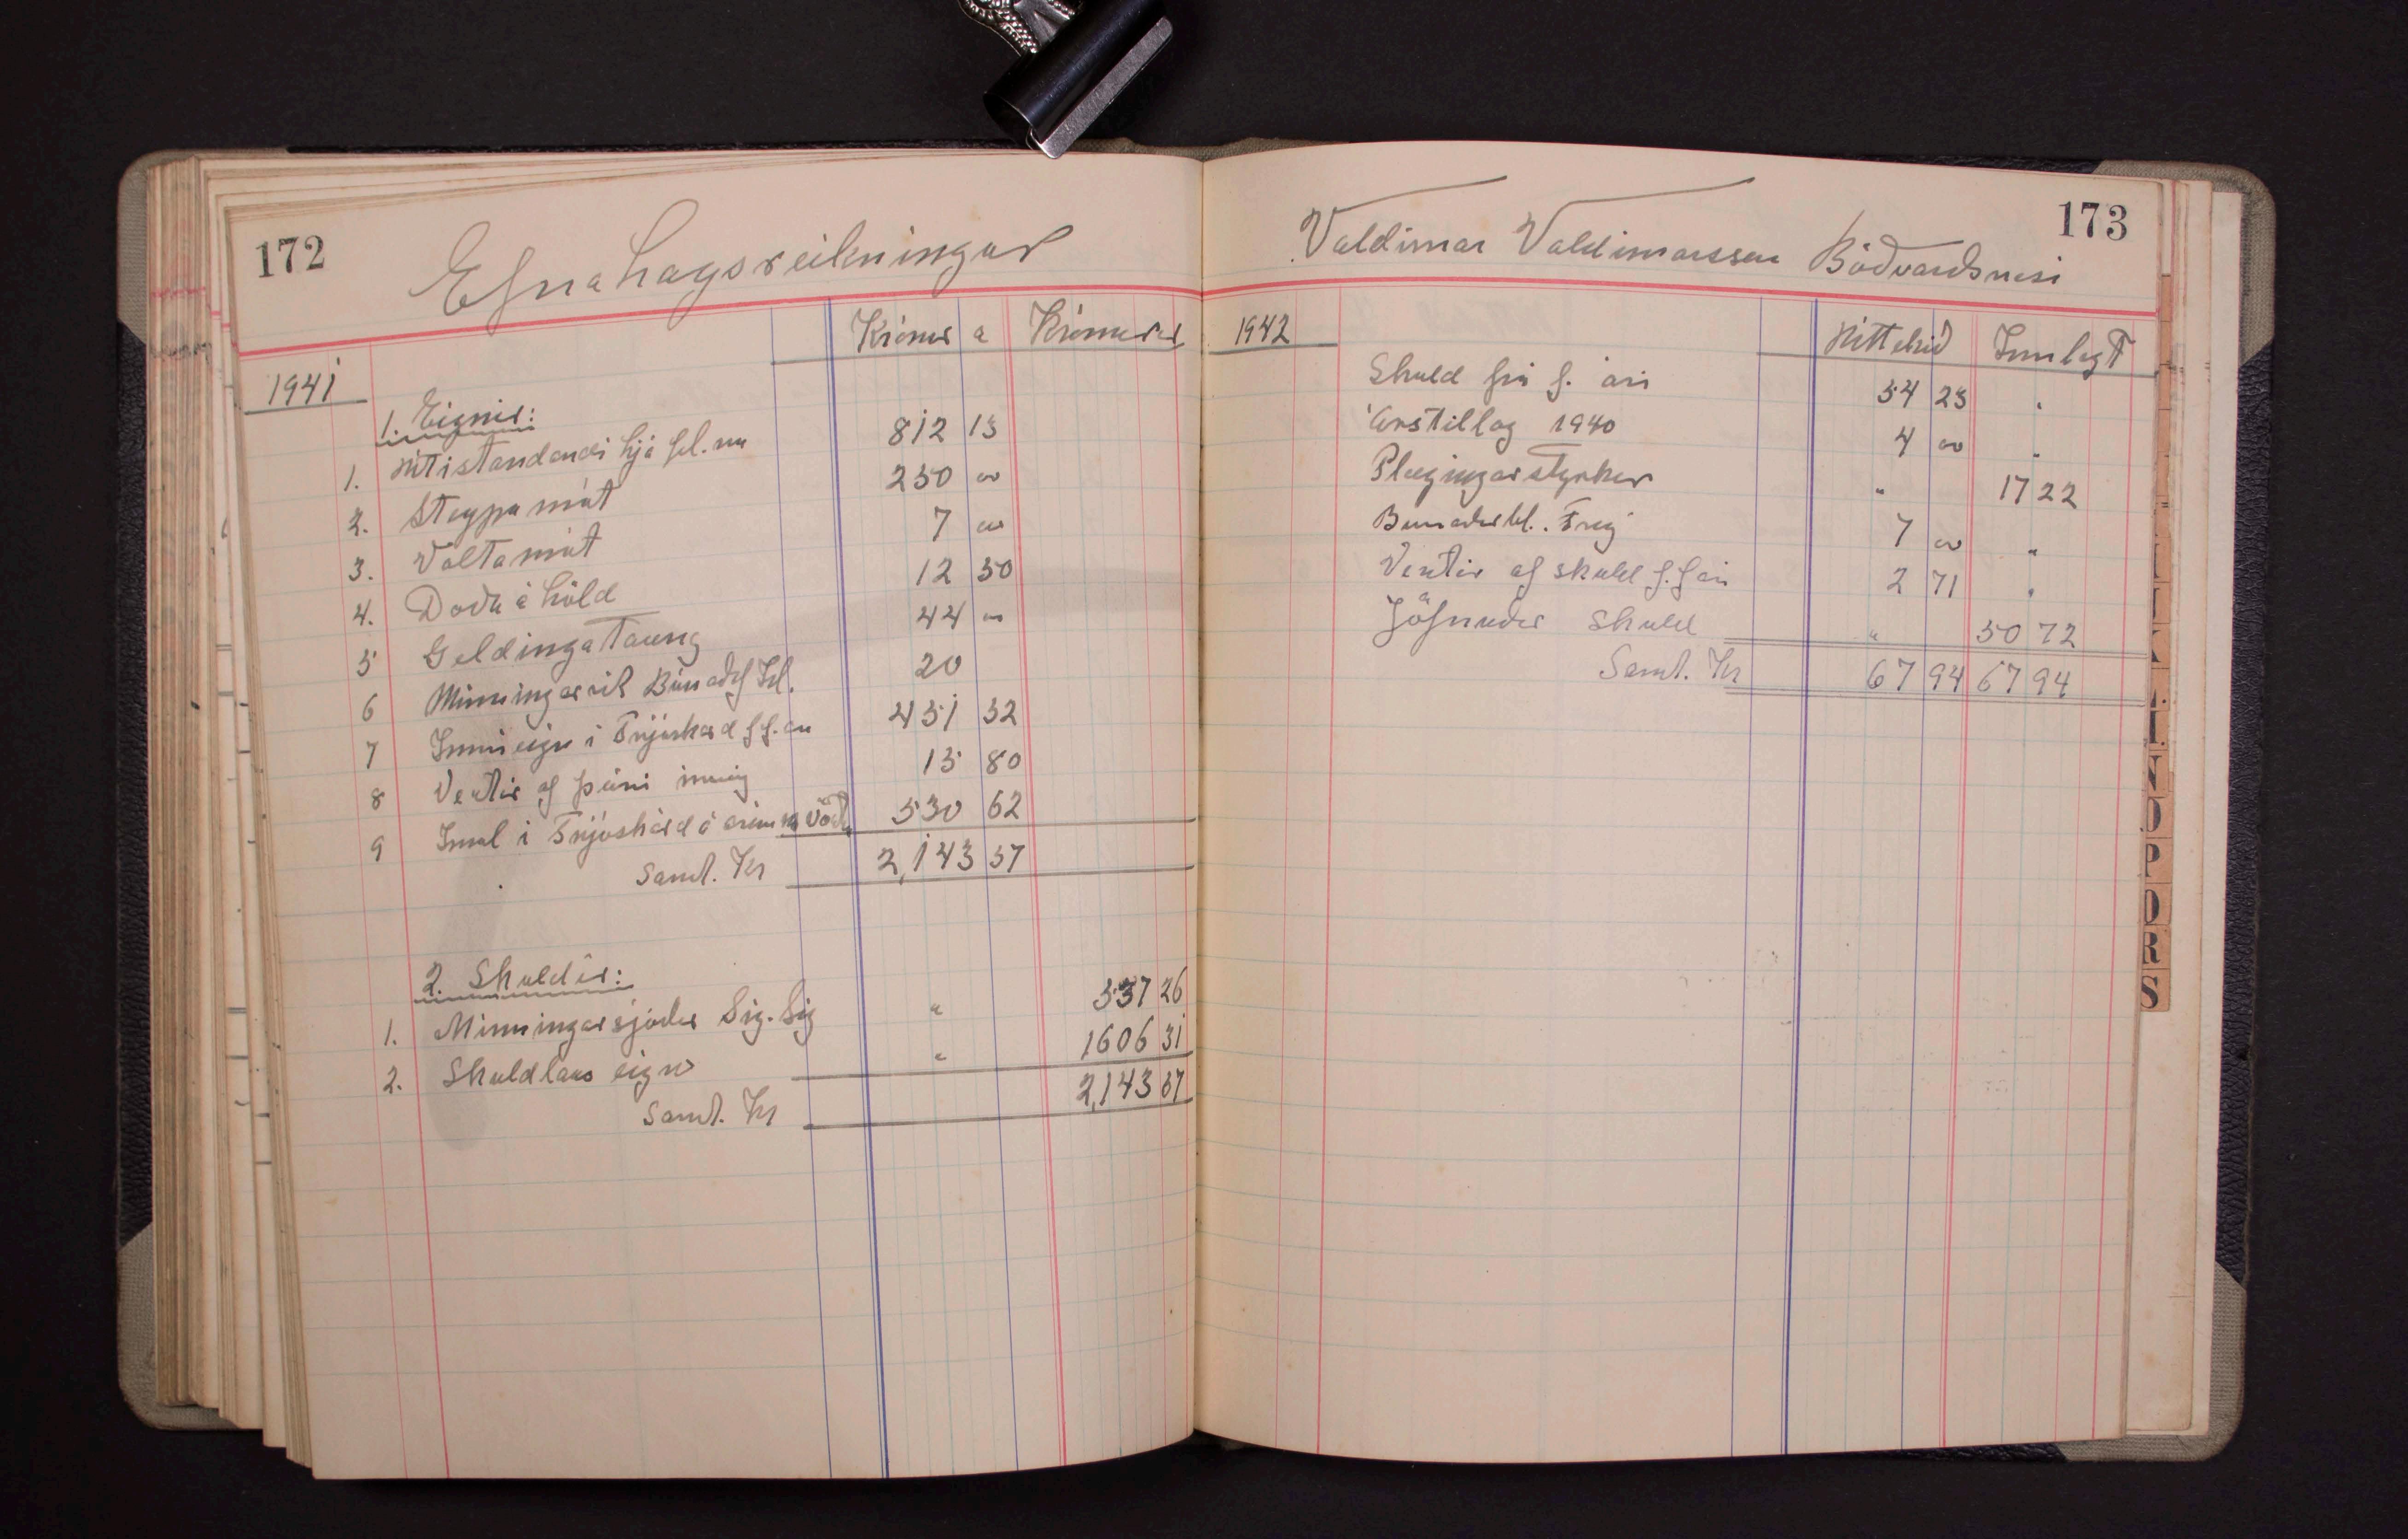 172
Efnahagsreikningur
Krónur a Krónur a
1941
1. Eignir:
1. Útistandandi hjá fél.m 812 13
2. Steypumót 250 00
3. Valtamót 7 00
4. Doðuáhöld 12 50
5 Geldingataung 44 00
6 Minningarrit Búnaðf Ísl. 20
7 Inneign í Fnjóskad f f. ári 451 32
8 Vextir af þeirri inneig 15 80
9 Innl í Fnjóskad á árinu 530 62
Samt. Kr 2,143 57
2. Skuldir:
1. Minningarsjóður Sig. Sig " 537 26
2. Skuldlaus eign " 1606 31
Samt. Kr 2,143 57
173
Valdimar Valdimarsson Böðvarsnesi
1942 Úttekið Innlagt
Skuld frá f. ári 54 23 "
Árstillag 1940 4 00 "
Plægingarstyrkur " 17 22
Búnaðarbl. Frey 7 00 "
Vextir af skuld f. f ári 2 71 "
Jöfnuður skuld " 50 72
Samt. Kr 67 94 67 94
N
O
P
Q
R
S